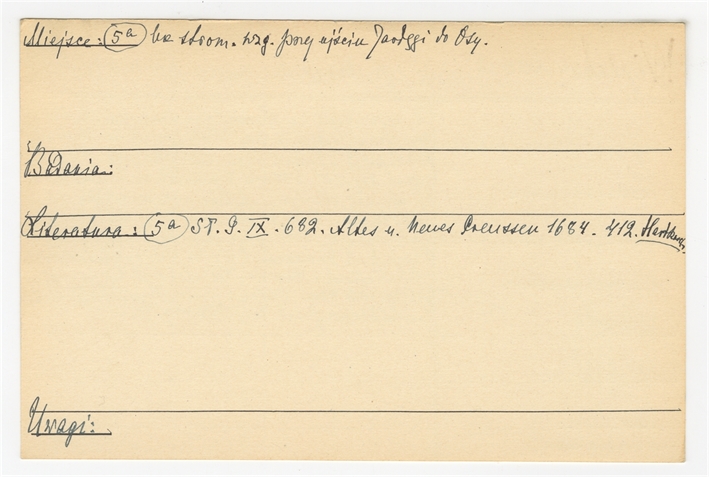 Miejsce: 5a na strom. wzg. przy ujściu Jardęgi do Osy.
Badania:
Literatura: 5a Sł. G. IX. 682. Altes u. Neues Preussen 1684. 412. Hartknoch
Uwagi: